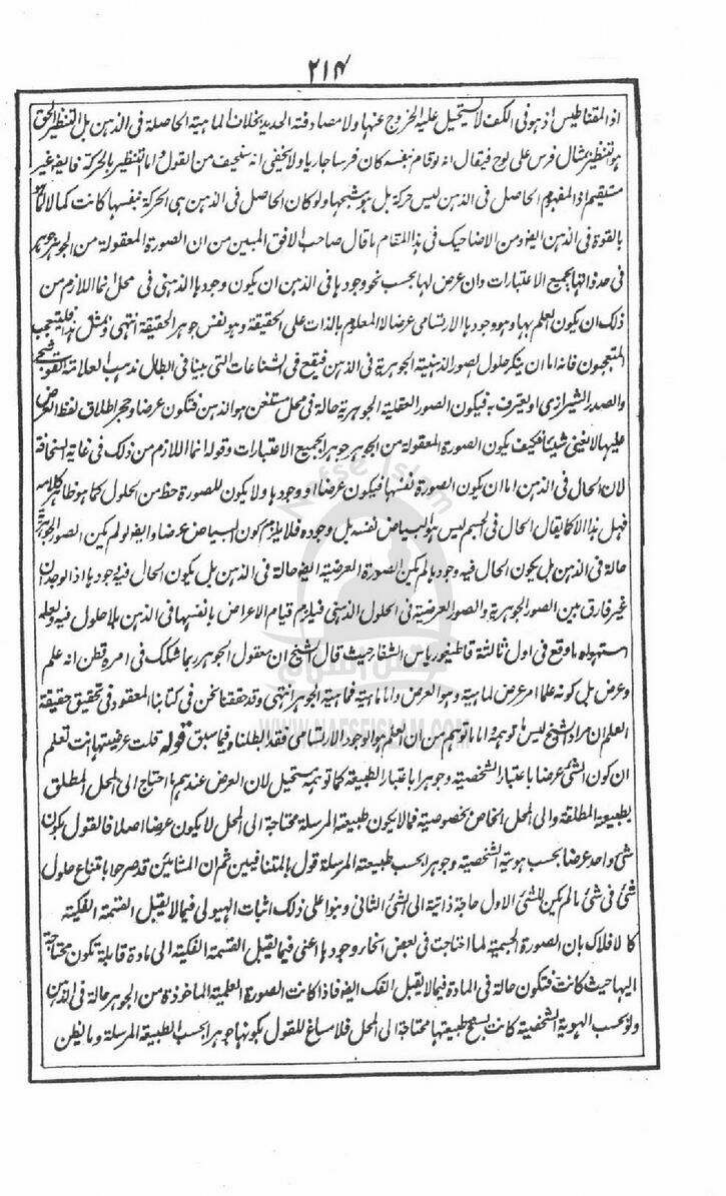 ٢١٤
اذ المقناطيس اذ هو فى الكف لا يستحيل عليه الخروج عنها ولا مصادفته الحديد بخلاف الماهية الحاصلة فى الذهن بل التنظير الحق
هو التنظير بمثال فرس على لوح فيقال انه لو قام بنفسه كان فرسا جاريا ولا يخفى انه سخيف من القول واما التنظير بالحركة فايضا غير
مستقيم اذ المفهوم الحاصل فى الذهن ليس حركة بل هو شبحها ولو كان الحاصل فى الذهن هى الحركة بنفسها كانت كمالا لما هو
بالقوة فى الذهن ايضا ومن الاضاحيك فى هذا المقام ما قال صاحب الافق المبين من ان الصورة المعقولة من الجوهر جوهر
فى حد ذاتها بجميع الاعتبارات وان عرض لها بحسب نحو وجودها فى الذهن ان يكون وجودها الذهنى فى محل انما اللازم من
ذلك ان يكون العلم بها وهو وجودها الارتسامى عرضا لا المعلوم بالذات على الحقيقة وهو نفس جوهر الحقيقة انتهى ولمثل هذا فليتعجب
المتعجبون فانه اما ان ينكر حلول الصور الذهنية الجوهرية فى الذهن فيقع فى الشناعات التى بينا فى ابطال مذهب العلامة القوشجى
والصدر الشيرازى او يعترف به فيكون الصور العقلية الجوهرية حالة فى محل مستغن هو الذهن فتكون عرضا وحجر اطلاق لفظ العرض
عليها لا يغنى شيئا فكيف يكون الصورة المعقولة من الجوهر جوهرا بجميع الاعتبارات وقوله انما اللازم من ذلك فى غاية السخافة
لان الحال فى الذهن اما ان يكون الصورة نفسها فيكون عرضا او وجودها ولا يكون للصورة حظ من الحلول كما هو ظاهر كلامه
فهل هذا الا كما يقال الحال فى الجسم ليس هو البياض نفسه بل وجوده فلا يلزم كون البياض عرضا وايضا لو لم يكن الصور الجوهرية
حالة فى الذهن بل يكون الحال فيه وجودها لم يكن الصورة العرضية ايضا حالة فى الذهن بل يكون الحال فيه وجودها اذ الوجدان
غير فارق بين الصور الجوهرية والصور العرضية فى الحلول الذهنى فيلزم قيام الاعراض بانفسها فى الذهن بلا حلول فيه ولعله
استهواه ما وقع فى اول ثالثة قاطيغورياس الشفا حيث قال الشيخ ان معقول الجوهر ربما شكك فى امره فظن انه علم
وعرض بل كونه علما امر عرض لماهيته وهو العرض واما ماهيته فماهية الجوهر انتهى وقد حققنا نحن فى كتابنا المعقود فى تحقيق حقيقة
العلم ان مراد الشيخ ليس ما توهمه واما ما توهم من ان العلم هو الوجود الارتسامى فقد ابطلناه فيما سبق قوله قلت عرضيتها انت تعلم
ان كون الشئ عرضا باعتبار الشخصية وجوهرا باعتبار الطبيعة كما توهمه مستحيل لان العرض عندهم ما احتاج الى المحل المطلق
بطبيعته المطلقة والى المحل الخاص بخصوصيته فما لا يكون طبيعته المرسلة محتاجة الى المحل لا يكون عرضا اصلا فالقول بكون
شئ واحد عرضا بحسب هويته الشخصية وجوهرا بحسب طبيعته المرسلة قول بالمتنافيين ثم ان المشائين قد صرحوا بامتناع حلول
شئ فى شئ ما لم يكن للشئ الاول حاجة ذاتية الى الشئ الثانى وبنوا على ذلك اثبات الهيولى فيما لا يقبل القسمة الفكية
كالافلاك بان الصورة الجسمية لما احتاجت فى بعض انحاء وجودها اعنى فيما يقبل القسمة الفكية الى مادة قابلة تكون محتاجة
اليها حيث كانت فتكون حالة فى المادة فيما لا يقبل الفك ايضا فاذا كانت الصورة العلمية الماخوذة من الجوهر حالة فى الذهن
ولو بحسب الهوية الشخصية كانت بسنخ طبيعتها محتاجة الى المحل فلا مساغ للقول بكونها جوهرا بحسب الطبيعة المرسلة وما يظن
Nafse Islam
WWW.NAFSEISLAM.COM